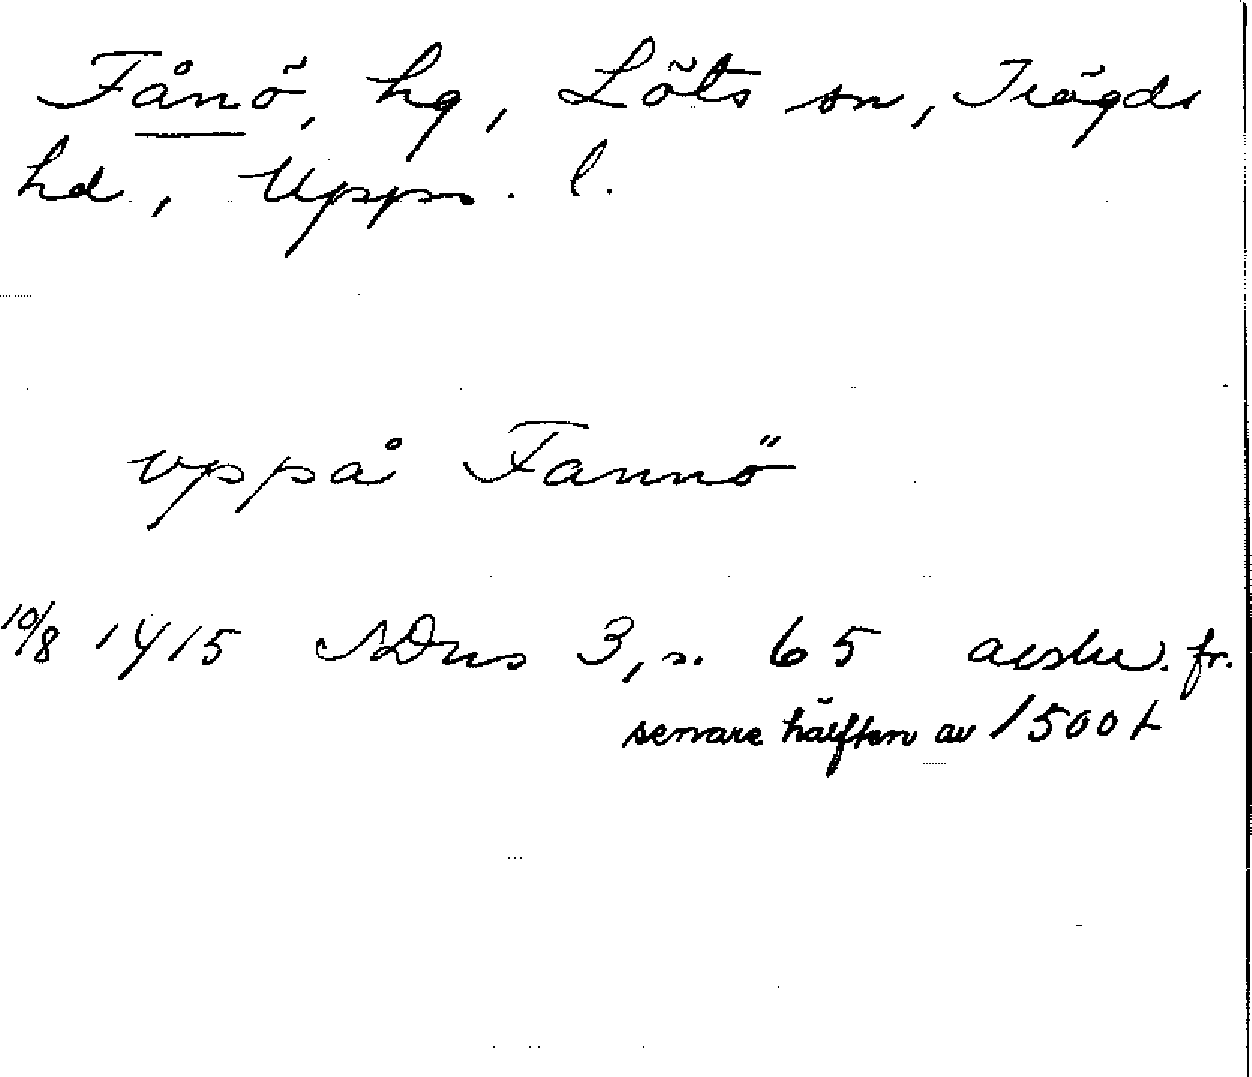 Fånö, hg, Löts sn, Trögds
hd, Upps. l.
vppå Fannö
10/8 1415 SDns 3, s. 65 avskr. fr.
senare hälften av 1500 t